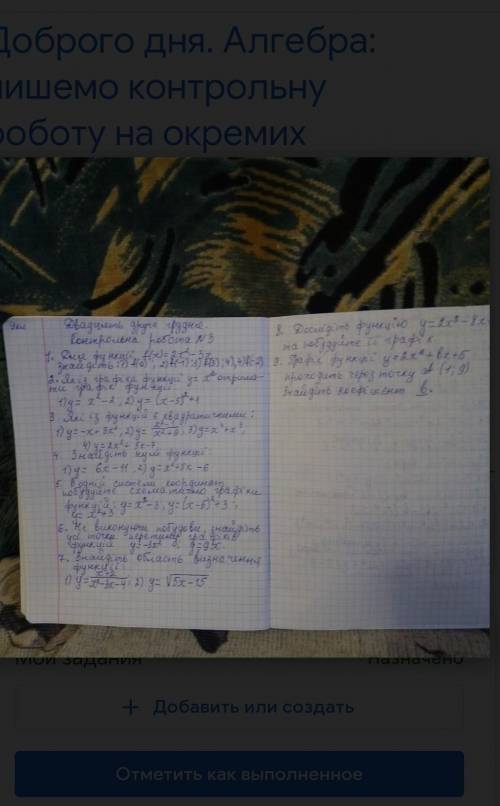 Доброго дня. Алгебра:
пишемо контрольну
роботу на окремих
Двадцять друге грудня.
Контрольна робота №3
1. Для функції f(x)=
знайдіть:
2. Як із графіка функції y=x²
ти графік функції:
1) y = x² - 2, 2) y = (x-5)²+
3. Які із функцій є квадратичними:
1) y=-x+3x², 2) y= 3) y=x²+x³,
4) y=2x²+3x-7
4. Знайдіть нулі функції:
1) y= 6x-11, 2) y=x²+5x-6
5. В одній системі координат
побудуйте схематично графіки
функцій: y=x²-3, y=(x-5)²+3
6. Не виконуючи побудови, знайдіть
усі точки перетину графіків
функцій
7. Знайдіть область визначення
функції
1) y= 2) y= √5x-15
8. Дослідіть функцію y=2x²-8x
та побудуйте її графік
9. Графік функції y=2x²+bx+5
проходить через точку A(1; 9)
Знайдіть коефіцієнт b.
Мои задания
Назначено
+ Добавить или создать
Отметить как выполненное